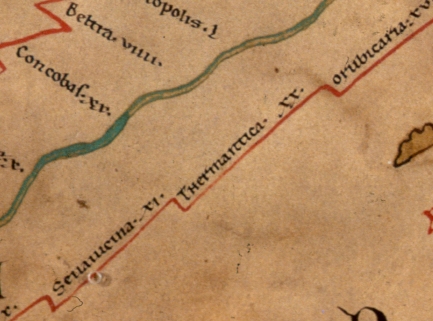 topolis·l
Betira·viiii·
Concobas·xx·
orubicaria·xv
Thermantica·xx·
Senaucina·xi·